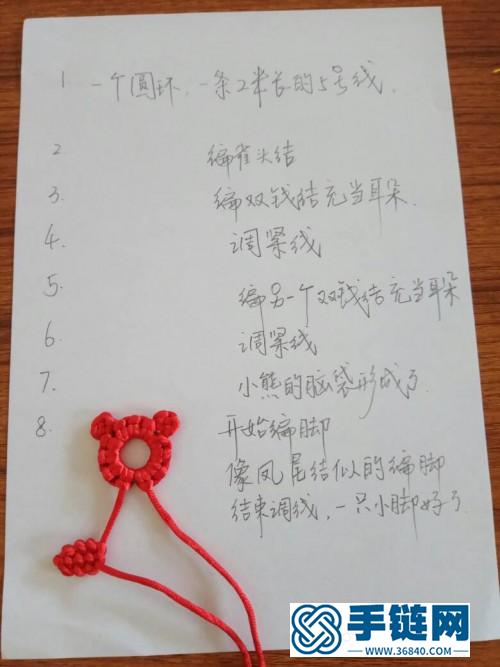 1 一个圆环，一条2米长的5号线，
2 编雀头结
3. 编双钱结充当耳朵.
4. 调紧线
5. 编另一个双钱结充当耳朵
6. 调紧线
7. 小熊的脑袋形成了.
8. 开始编脚
像凤尾结似的编脚
结束调线，一只小脚好了
手链网
www.36840.com